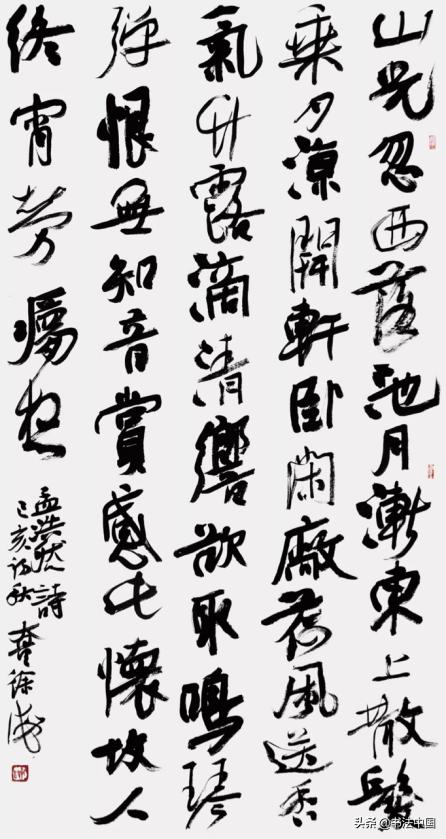 山光忽西落池月漸東上散髮
乘夕涼開軒卧閑廠荷風送香
氣竹露滴清響欲取鳴琴
彈恨無知音賞感此懷故人
終宵勞夢想
孟浩然詩
己亥初秋
头条 @书法中国